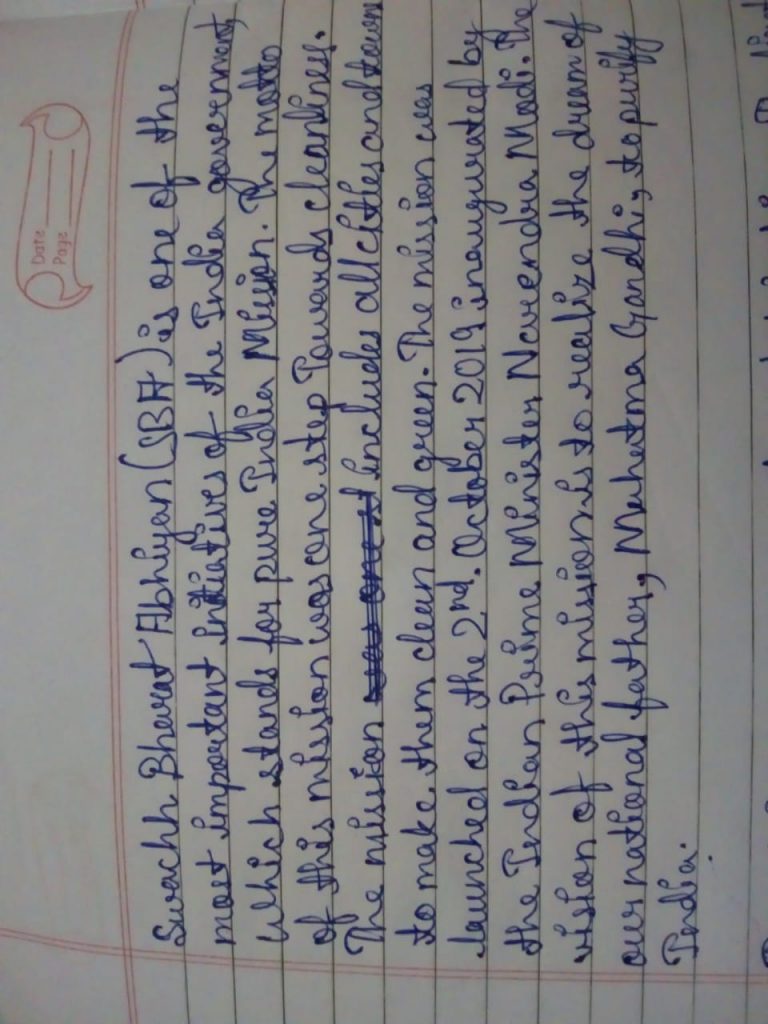 Date
Page
Swachh Bharat Abhiyan (SBA) is one of the
most important initiatives of the India government,
which stands for pure India Mission. The motto
of this mission was one step Towards cleanliness.
The mission includes all cities and town
to make them clean and green. The mission was
launched on the 2nd. October 2019 inaugurated by
the Indian Prime Minister Narendra Modi. The
vision of this mission is to realize the dream of
our national father, Mahatma Gandhi, to purify
India.